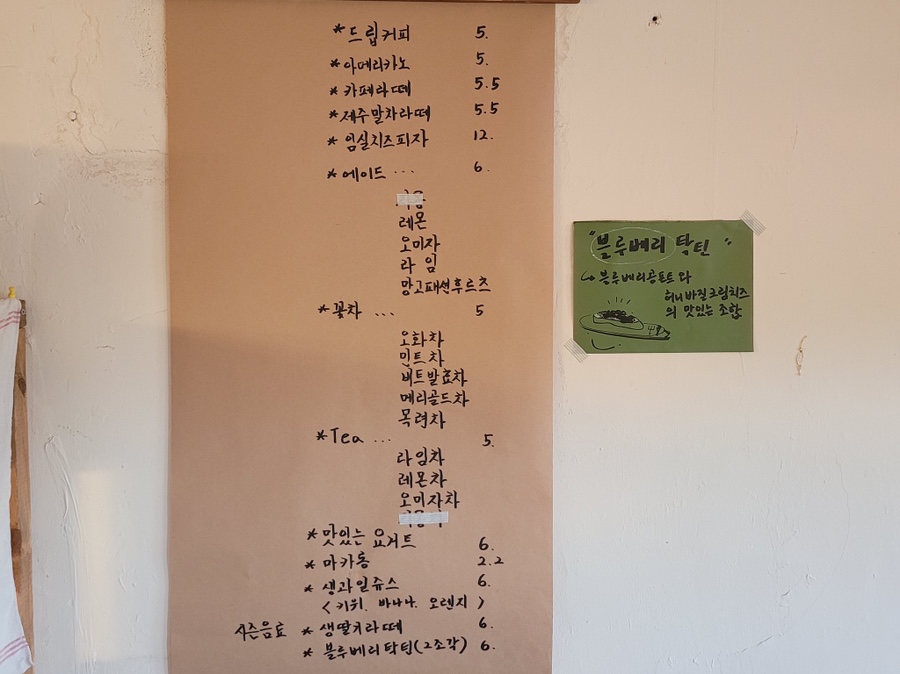 * 드립커피 5.
* 아메리카노 5.
* 카페라떼 5.5
* 제주말차라떼 5.5
* 임실치즈피자 12.
* 에이드 ... 6.
레몬
오미자
라임
망고패션후르츠
* 꽃차 ... 5
오화차
민트차
버트발효차
메리골드차
목련차
* Tea ... 5.
라임차
레몬차
오미자차
* 맛있는 요거트 6.
* 마카롱 2.2
* 생과일쥬스 6.
< 키위, 바나나, 오렌지 >
시즌음료 * 생딸기라떼 6.
* 블루베리탁틴(2조각) 6.
"블루베리 탁틴"
↳ 블루베리콩포트와
허니바질크림치즈
의 맛있는 조합